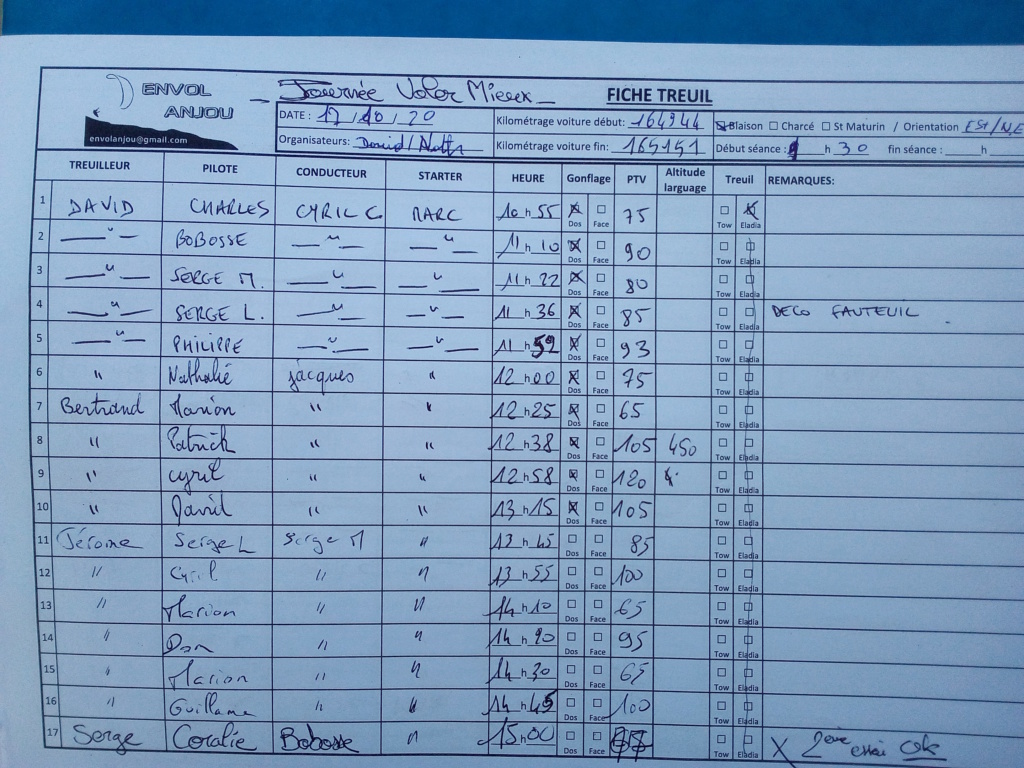 ENVOL ANJOU
envolanjou@gmail.com
Journée Voler Mieux
FICHE TREUIL
DATE : 17/10/20
Organisateurs: David/Nath
Kilométrage voiture début: 164944
Kilométrage voiture fin: 165151
☒ Blaison ☐ Charcé ☐ St Maturin / Orientation Est/NE
Début séance : h 30 fin séance : h
TREUILLEUR PILOTE CONDUCTEUR STARTER HEURE Gonflage PTV Altitude larguage Treuil REMARQUES:
1 DAVID CHARLES CYRIL C MARC 10 h 55 ☒ Dos ☐ Face 75 ☐ Tow ☒ Eladia
2 —"— BOBOSSE —"— —"— 11 h 10 ☒ Dos ☐ Face 90 ☐ Tow ☐ Eladia
3 —"— SERGE M. —"— —"— 11 h 22 ☒ Dos ☐ Face 80 ☐ Tow ☐ Eladia
4 —"— SERGE L. —"— —"— 11 h 36 ☒ Dos ☐ Face 85 ☐ Tow ☐ Eladia DECO FAUTEUIL
5 —"— PHILIPPE —"— —"— 11 h 52 ☒ Dos ☐ Face 93 ☐ Tow ☐ Eladia
6 " Nathalie jacques " 12 h 00 ☒ Dos ☐ Face 75 ☐ Tow ☐ Eladia
7 Bertrand Marion " " 12 h 25 ☒ Dos ☐ Face 65 ☐ Tow ☐ Eladia
8 " Patrick " " 12 h 38 ☒ Dos ☐ Face 105 450 ☐ Tow ☐ Eladia
9 " cyril " " 12 h 58 ☒ Dos ☐ Face 120 ☐ Tow ☐ Eladia
10 " David " " 13 h 15 ☒ Dos ☐ Face 105 ☐ Tow ☐ Eladia
11 Jérome Serge L Serge M " 13 h 45 ☐ Dos ☐ Face 85 ☐ Tow ☐ Eladia
12 " Cyril " " 13 h 55 ☐ Dos ☐ Face 100 ☐ Tow ☐ Eladia
13 " Marion " " 14 h 10 ☐ Dos ☐ Face 65 ☐ Tow ☐ Eladia
14 " Dan " " 14 h 20 ☐ Dos ☐ Face 95 ☐ Tow ☐ Eladia
15 " Marion " " 14 h 30 ☐ Dos ☐ Face 65 ☐ Tow ☐ Eladia
16 " Guillame " " 14 h 45 ☐ Dos ☐ Face 100 ☐ Tow ☐ Eladia
17 Serge Coralie Bobosse " 15 h 00 ☐ Dos ☐ Face ☐ Tow ☐ Eladia X 2ème essai ok